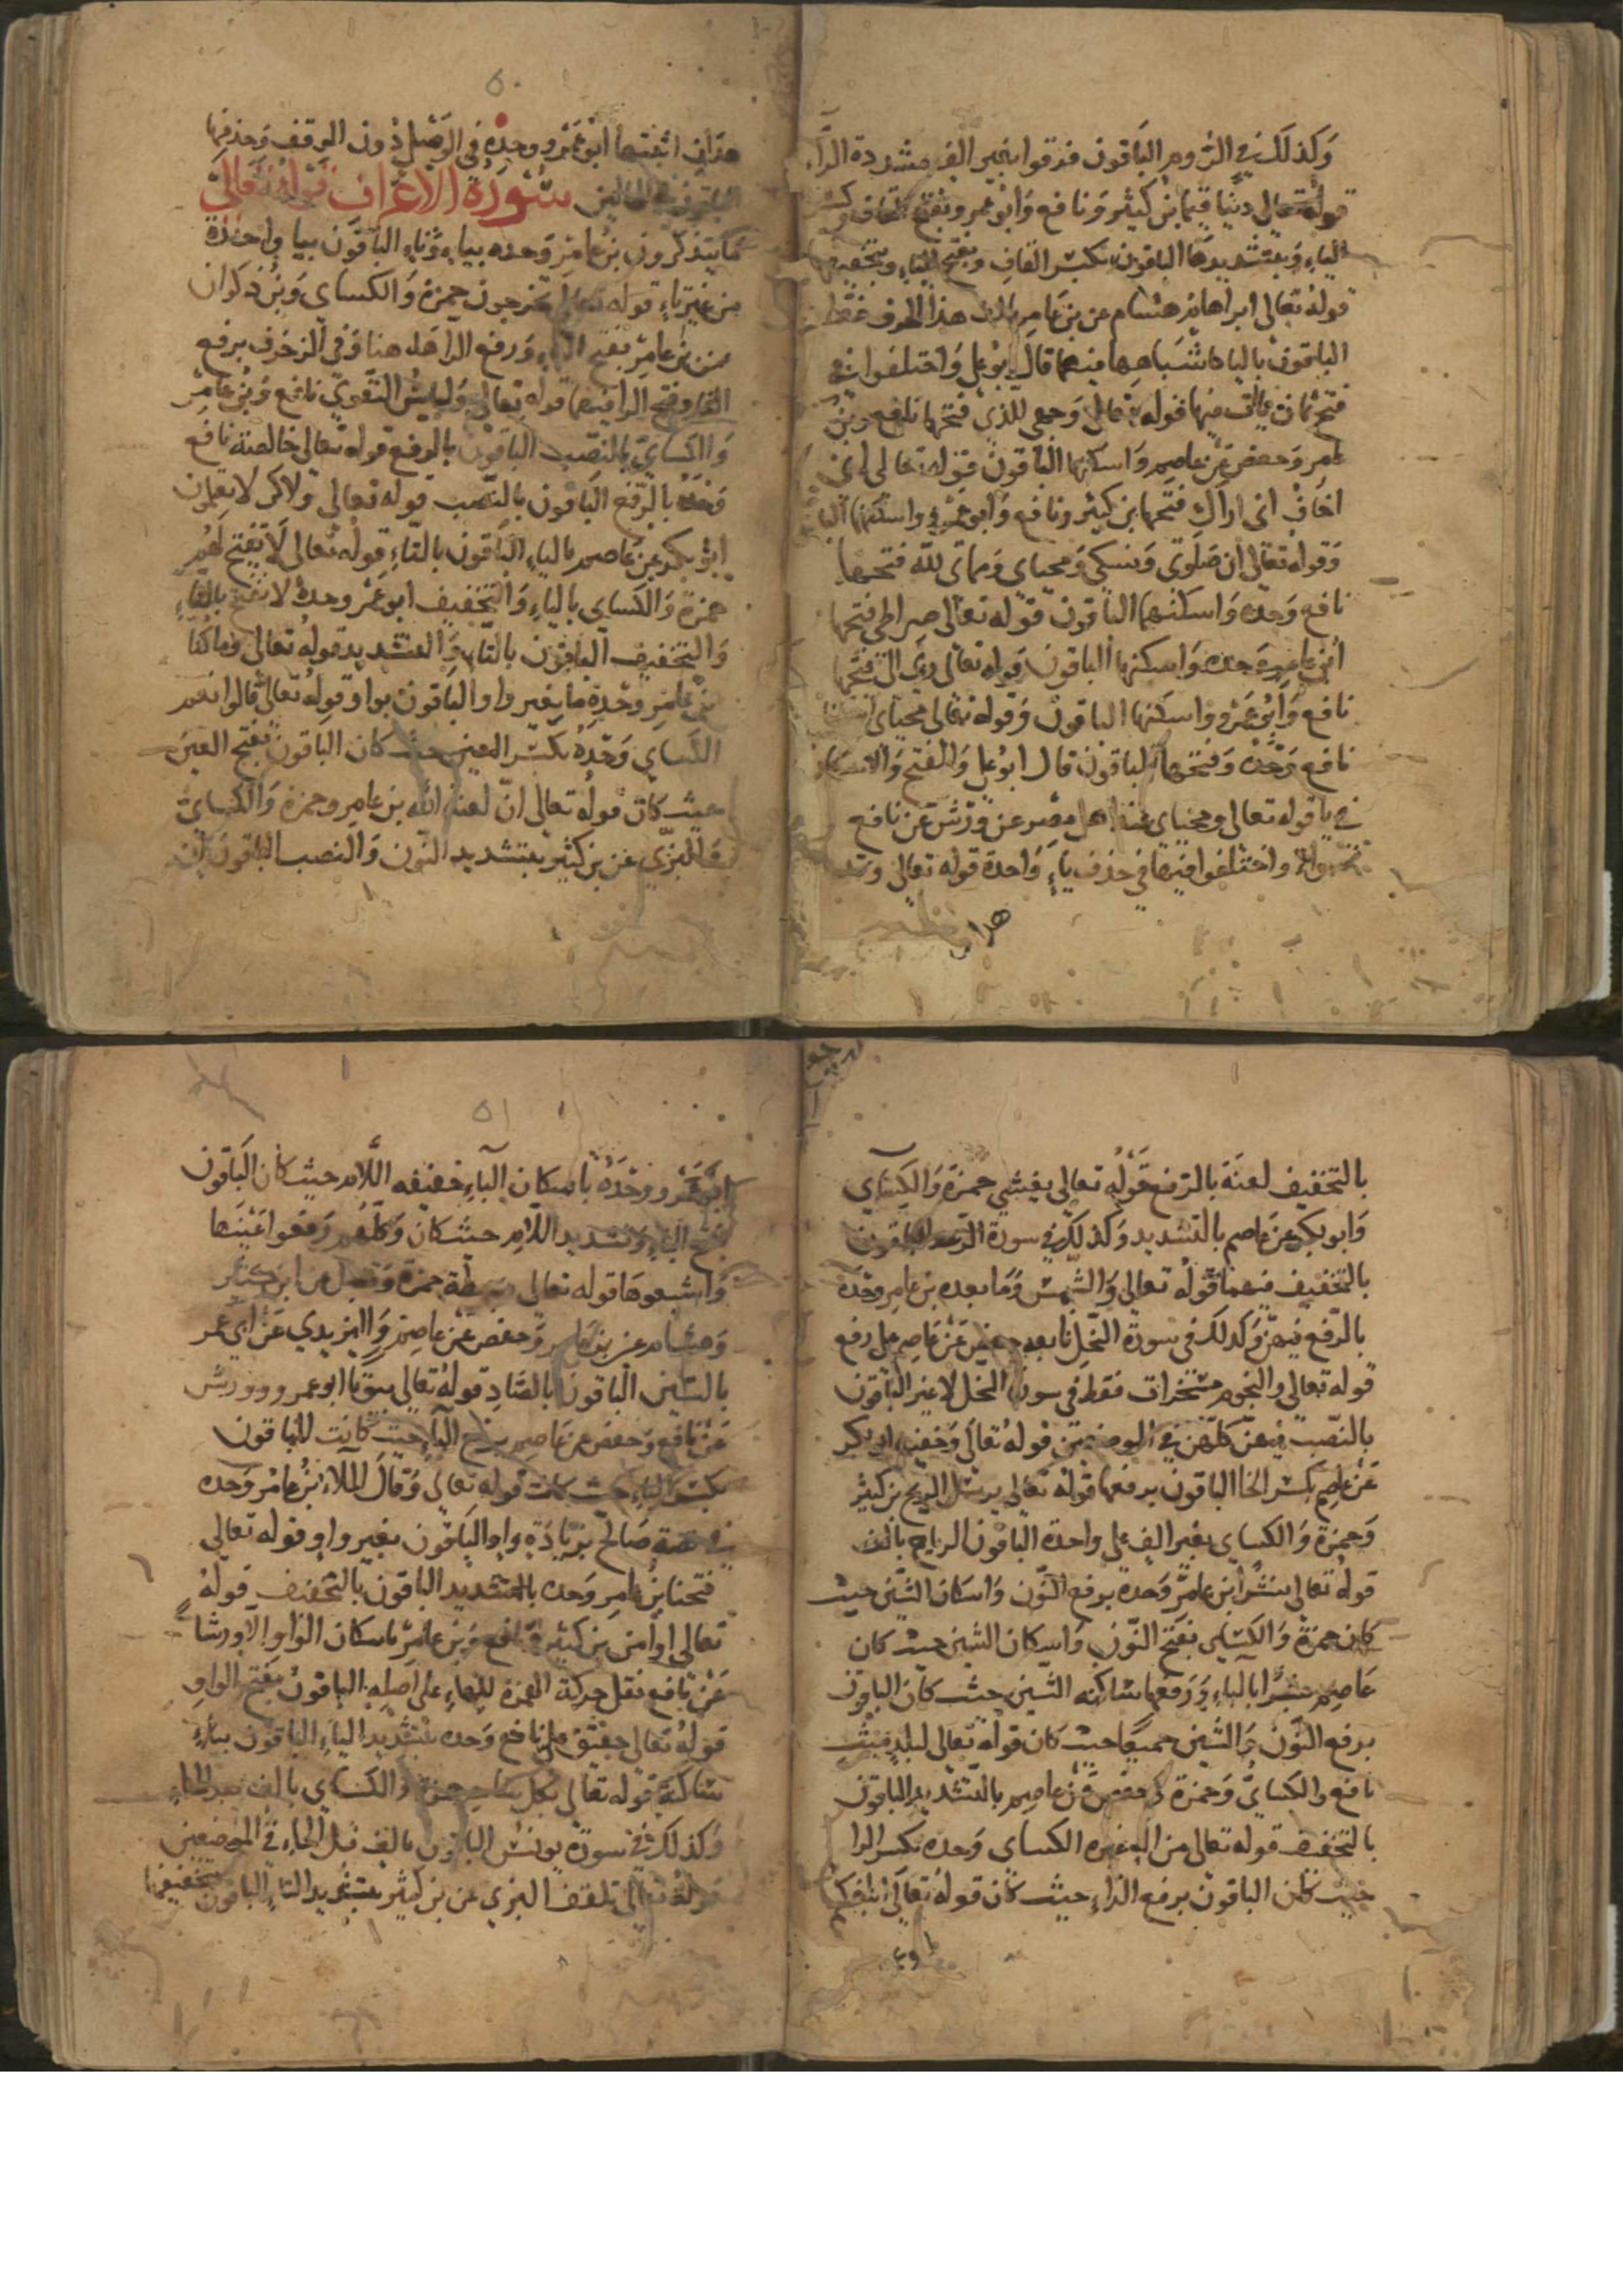 وَكذلك في الروم الباقون فرقوا بغير الف مشددة الراء
قوله تعالى دينا قيما بن كثير ونافع وابو عمرو بفتح القاف وكسر
الياء وبتشديدها الباقون بكسر القاف وبفتح الياء وبتخفيفها
قوله تعالى ابراهام هشام عن بن عامر بالف هذا الحرف فقط
الباقون بالياء قال ابو علي واختلفوا في
فتح ثمان منها قوله تعالى وجهي للذي فتحها نافع وبن
عامر وحفص عن عاصم واسكنها الباقون قوله تعالى اني
اخاف اني اراك فتحها بن كثير ونافع وابو عمرو واسكنها
وقوله تعالى ان صلوتي ونسكي ومحياي ومماتي لله فتحها
نافع وحده واسكنها الباقون قوله تعالى صراطي فتحها
ابن عامر وحده واسكنها الباقون قوله تعالى ربي الى فتحها
نافع وابو عمرو واسكنها الباقون وقوله تعالى محياي
نافع وحده وفتحها الباقون قال ابو علي والفتح والاسكان
في يا قوله تعالى ومحياي عند اهل مصر عن ورش عن نافع
واختلفوا فيها في حذف ياء واحدة قوله تعالى وقد
هدان
٥٠
هدان اثبتها ابو عمرو وحده في الوصل دون الوقف وحذفها
الباقون في الحالين سورة الاعراف قوله تعالى
ما يتذكرون بن عامر وحده بياء وتاء الباقون بتا واحدة
من غير ياء قوله تعالى تخرجون حمزة والكساي وبن ذكوان
عن بن عامر بفتح التاء ورفع الراء هنا وفي الزخرف برفع
التاء وفتح الرا فيهما قوله تعالى ولباس التقوى نافع وبن عامر
والكساي بالنصب الباقون بالرفع قوله تعالى خالصة نافع
وحده بالرفع الباقون بالنصب قوله تعالى ولاكن لا يعلمون
ابو بكر عن عاصم بالياء الباقون بالتاء قوله تعالى لا تفتح لهم
حمزة والكساي بالياء والتخفيف ابو عمرو وحده لا تفتح بالتاء
والتخفيف الباقون بالتاء والتشديد قوله تعالى وما كنا
بن عامر وحده ما بغير واو الباقون بواو قوله تعالى قالوا نعم
الكساي وحده بكسر العين حيث كان الباقون بفتح العين
حيث كان قوله تعالى ان لعنة الله بن عامر وحمزة والكساي
والبزي عن بن كثير بتشديد النون والنصب الباقون ان
بالتخفيف لعنة بالرفع قوله تعالى يغشي حمزة والكساي
وابو بكر عن عاصم بالتشديد وكذلك في سورة الرعد الباقون
بالتخفيف فيهما قوله تعالى والشمس وما بعده بن عامر وحده
بالرفع فيهن وكذلك في سورة النحل تابعه حفص عن عاصم على رفع
قوله تعالى والنجوم مسخرات فقط في سورة النحل لا غير الباقون
بالنصب فيهن كلهن في الموضعين قوله تعالى وخفية ابو بكر
عن عاصم بكسر الخا الباقون برفعها قوله تعالى يرسل الريح بن كثير
وحمزة والكساي بغير الف على واحدة الباقون الرياح بالف
قوله تعالى نشرا بن عامر وحده برفع النون واسكان الشين حيث
كان حمزة والكساي بفتح النون واسكان الشين حيث كان
عاصم بشرا بالباء ورفعها ساكنة الشين حيث كان الباقون
برفع النون والشين جميعا حيث كان قوله تعالى لبلد ميت
نافع والكساي وحمزة وحفص عن عاصم بالتشديد الباقون
بالتخفيف قوله تعالى من اله غيره الكساي وحده بكسر الرا
حيث كان الباقون برفع الراء حيث كان قوله تعالى ابلغكم
ابو ع
٥١
ابو عمرو وحده باسكان الباء خفيفه اللام حيث كان الباقون
بفتح الباء وتشديد اللام حيث كان وكلهم رفعوا غينها
واشبعوها قوله تعالى بسطة حمزة وقنبل عن ابن كثير
وهشام عن بن عامر وحفص عن عاصم واليزيدي عن ابي عمر
بالسين الباقون بالصاد قوله تعالى بيوتا ابو عمرو وورش
عن نافع وحفص عن عاصم برفع الباء حيث كانت الباقون
بكسر الباء حيث كانت قوله تعالى وقال الملأ بن عامر وحده
في قصة صالح بزيادة واو الباقون بغير واو قوله تعالى
فتحنا بن عامر وحده بالتشديد الباقون بالتخفيف قوله
تعالى اوامن بن كثير ونافع وبن عامر باسكان الواو الا ورشا
عن نافع نقل حركة الهمزة للهاء على اصله الباقون بفتح الواو
قوله تعالى حقيق على نافع وحده بتشديد الياء الباقون بياء
ساكنة قوله تعالى بكل سحار حمزة والكساي بالف بعد الحاء
وكذلك في سورة يونس الباقون بالف قبل الحاء في الموضعين
قوله تعالى تلقف البزي عن بن كثير بتشديد التاء الباقون بتخفيفها